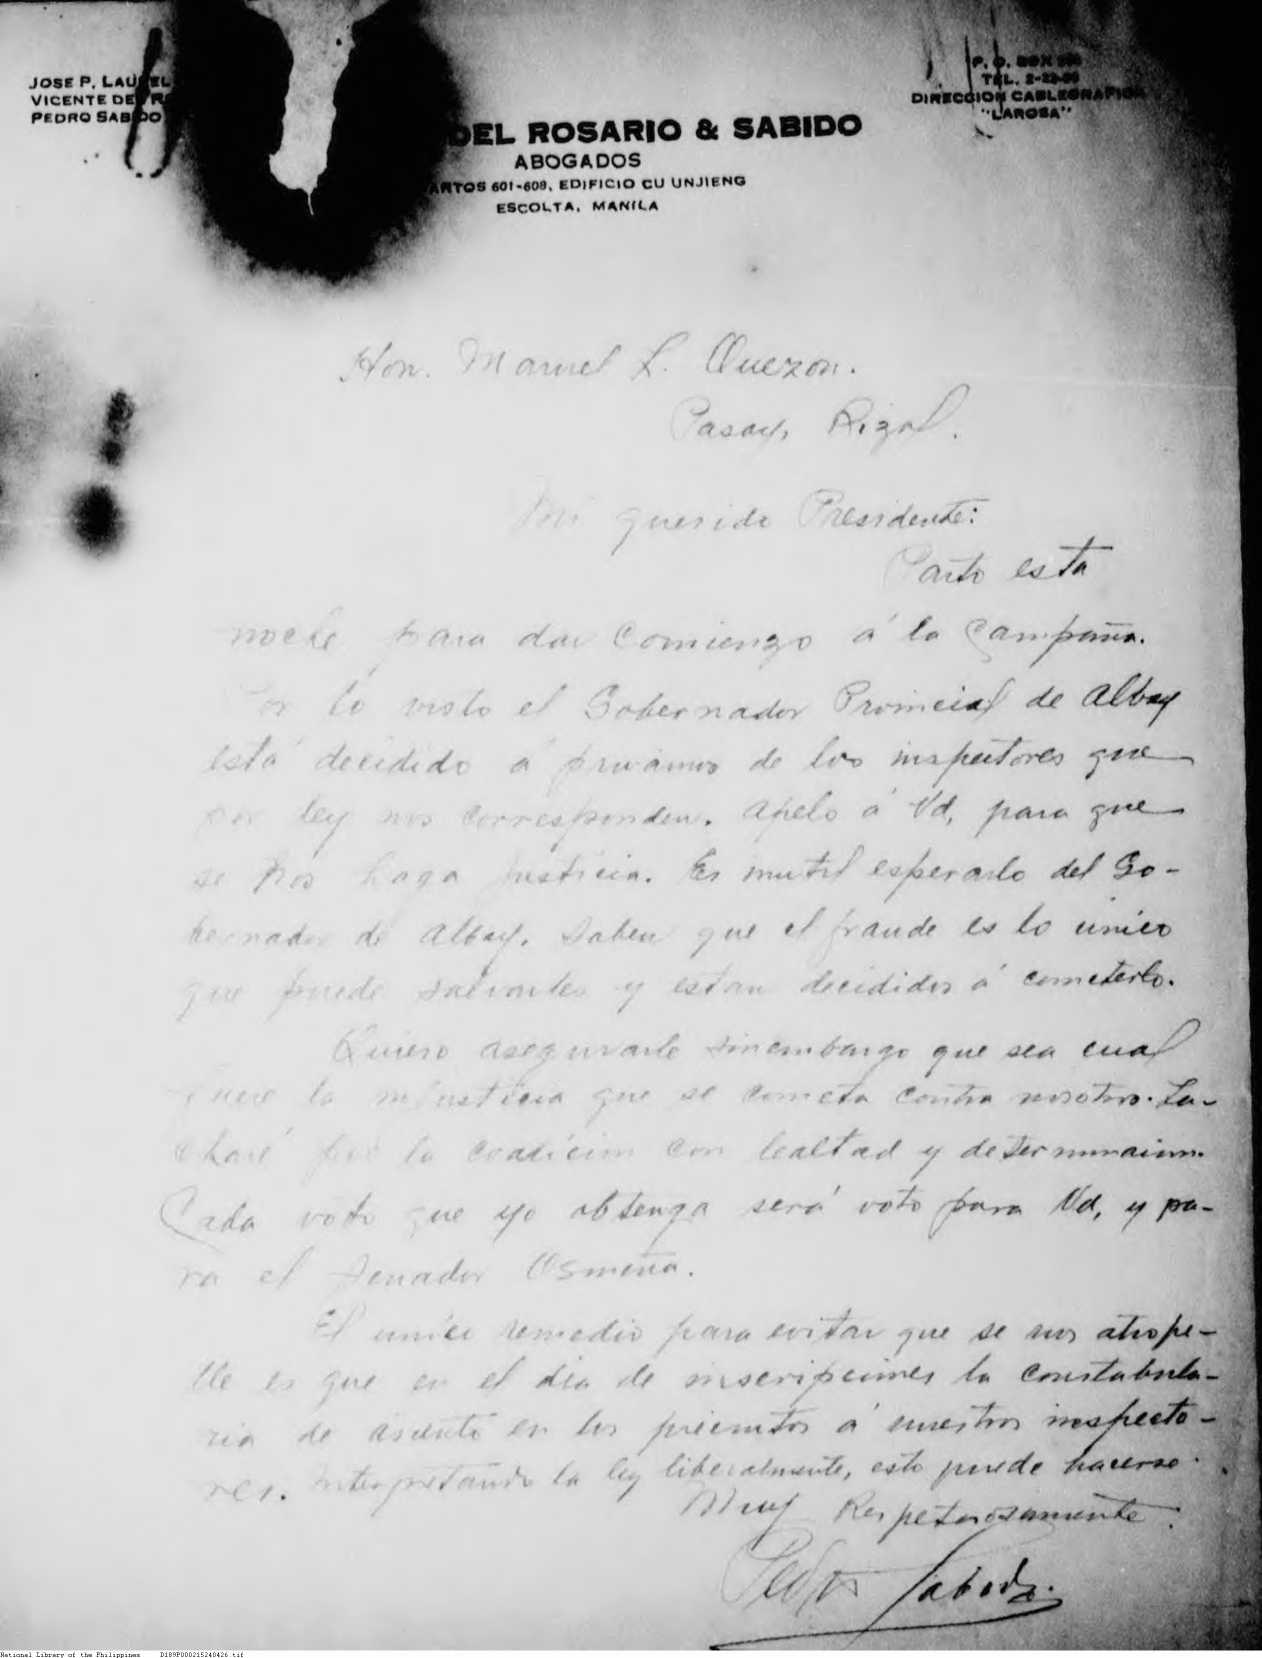 JOSE P. LAUREL
VICENTE DEL R
PEDRO SABIDO
P. O. BOX
TEL. 2-22-
DIRECCION CABLEGRAFICA
"LAROSA"
DEL ROSARIO & SABIDO
ABOGADOS
ARTOS 601-608, EDIFICIO CU UNJIENG
ESCOLTA, MANILA
Hon. Manuel L. Quezon.
Pasay, Rizal.
Mi querido Presidente:
Parto esta
noche para dar comienzo á la campaña.
Por lo visto el Gobernador Provincial de Albay
está decidido á privarnos de los inspectores que
por ley nos corresponden. Apelo á Vd, para que
se nos haga justicia. Es inutil esperarlo del Go-
bernador de Albay. Saben que el fraude es lo único
que puede salvarles y estan decididos á cometerlo.
Quiero asegurarle sinembargo que sea cual
fuere la injusticia que se cometa contra nosotros. Lu-
charé por la coalición con lealtad y determinacion.
Cada voto que yo obtenga será voto para Vd, y pa-
ra el Senador Osmeña.
El unico remedio para evitar que se nos atrope-
lle es que en el dia de inscripciones la constabula-
ria de asiento en los precintos á nuestros inspecto-
res. Interpretando la ley liberalmente, esto puede hacerse.
Muy Respetuosamente.
Pedro Sabido.
National Library of the Philippines D189P000215240426.tif